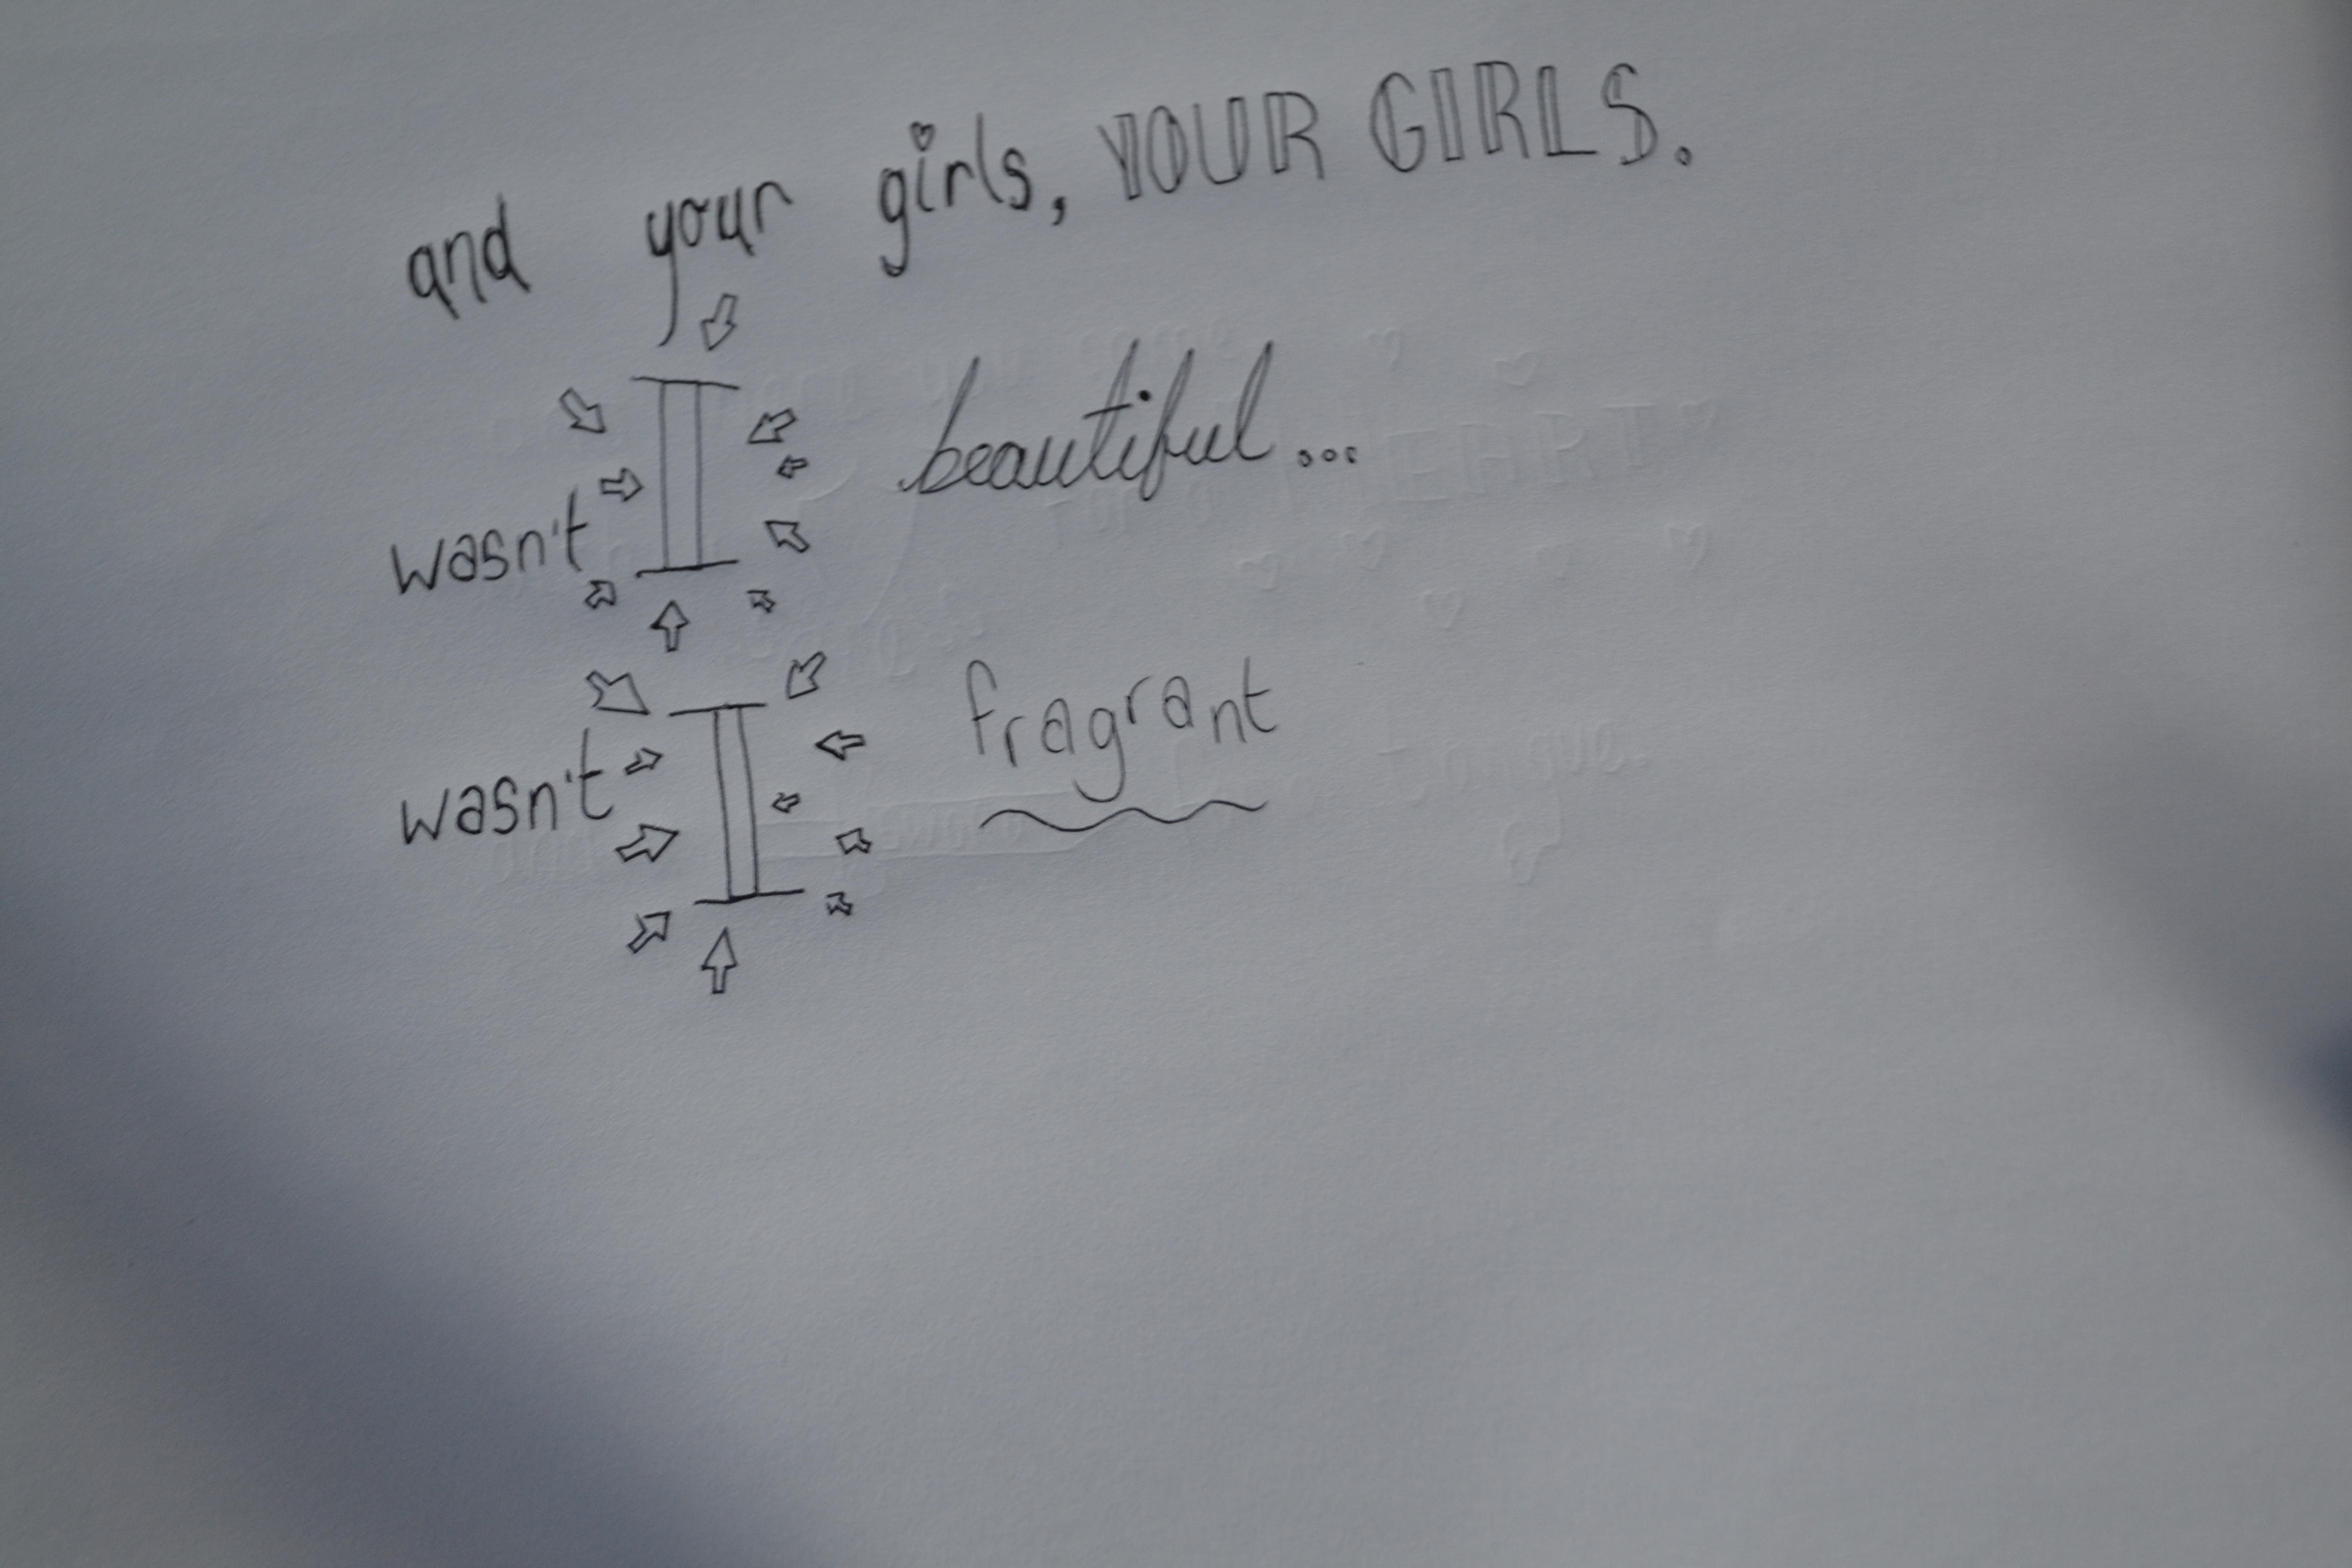 and your girls, YOUR GIRLS.
wasn't I beautiful...
wasn't I fragrant